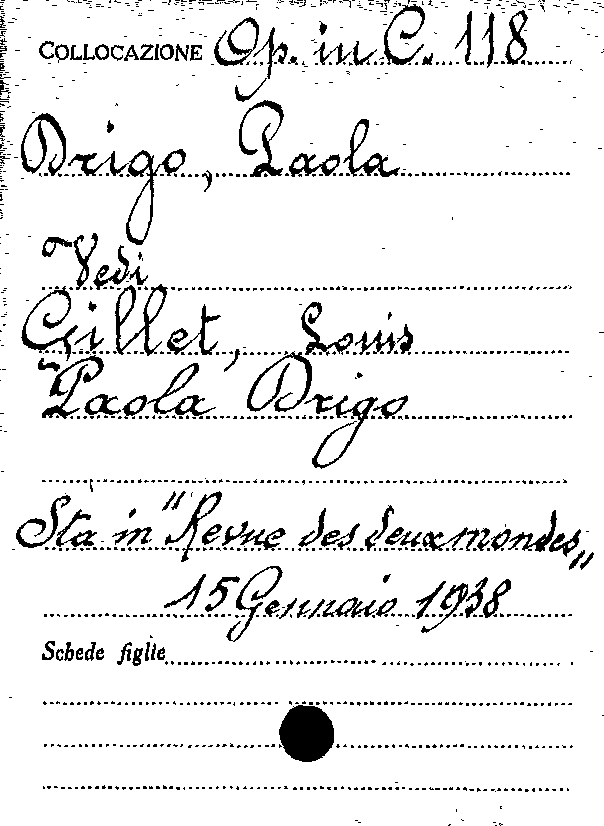 COLLOCAZIONE Op. in C. 118
Drigo, Paola
Vedi
Gillet, Louis
Paola Drigo
Sta in "Revue des deux mondes„
15 Gennaio 1938
Schede figlie